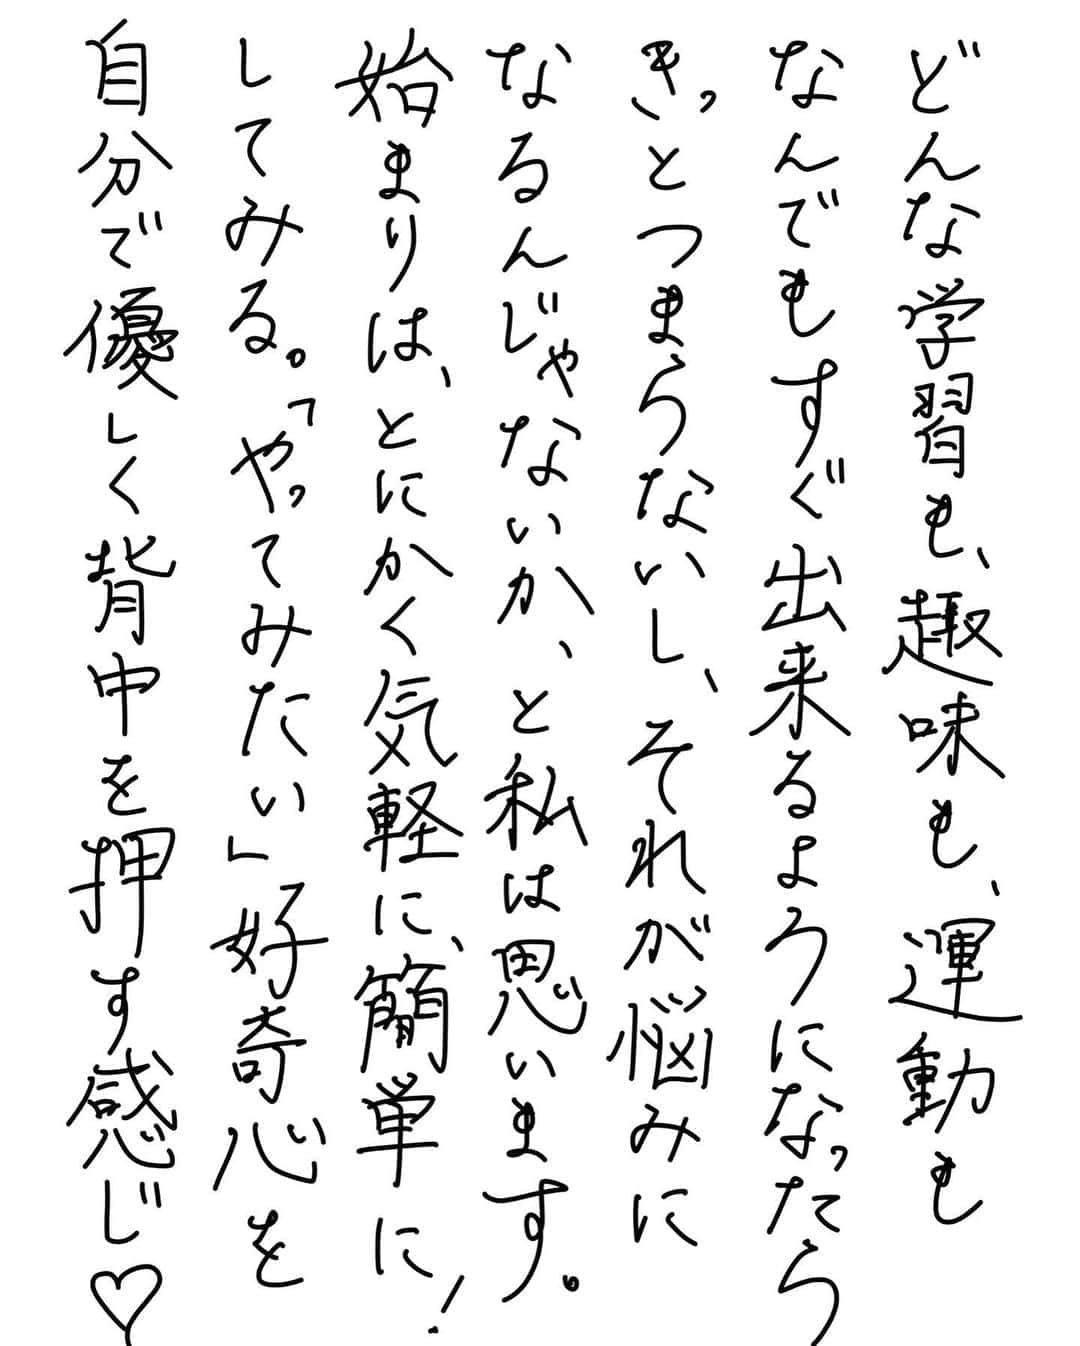 どんな学習も、趣味も、運動も
なんでもすぐ出来るようになったら
きっとつまらないし、それが悩みに
なるんじゃないか、と私は思います。
始まりは、とにかく気軽に、簡単に！
してみる。「やってみたい」好奇心を
自分で優しく背中を押す感じ♡